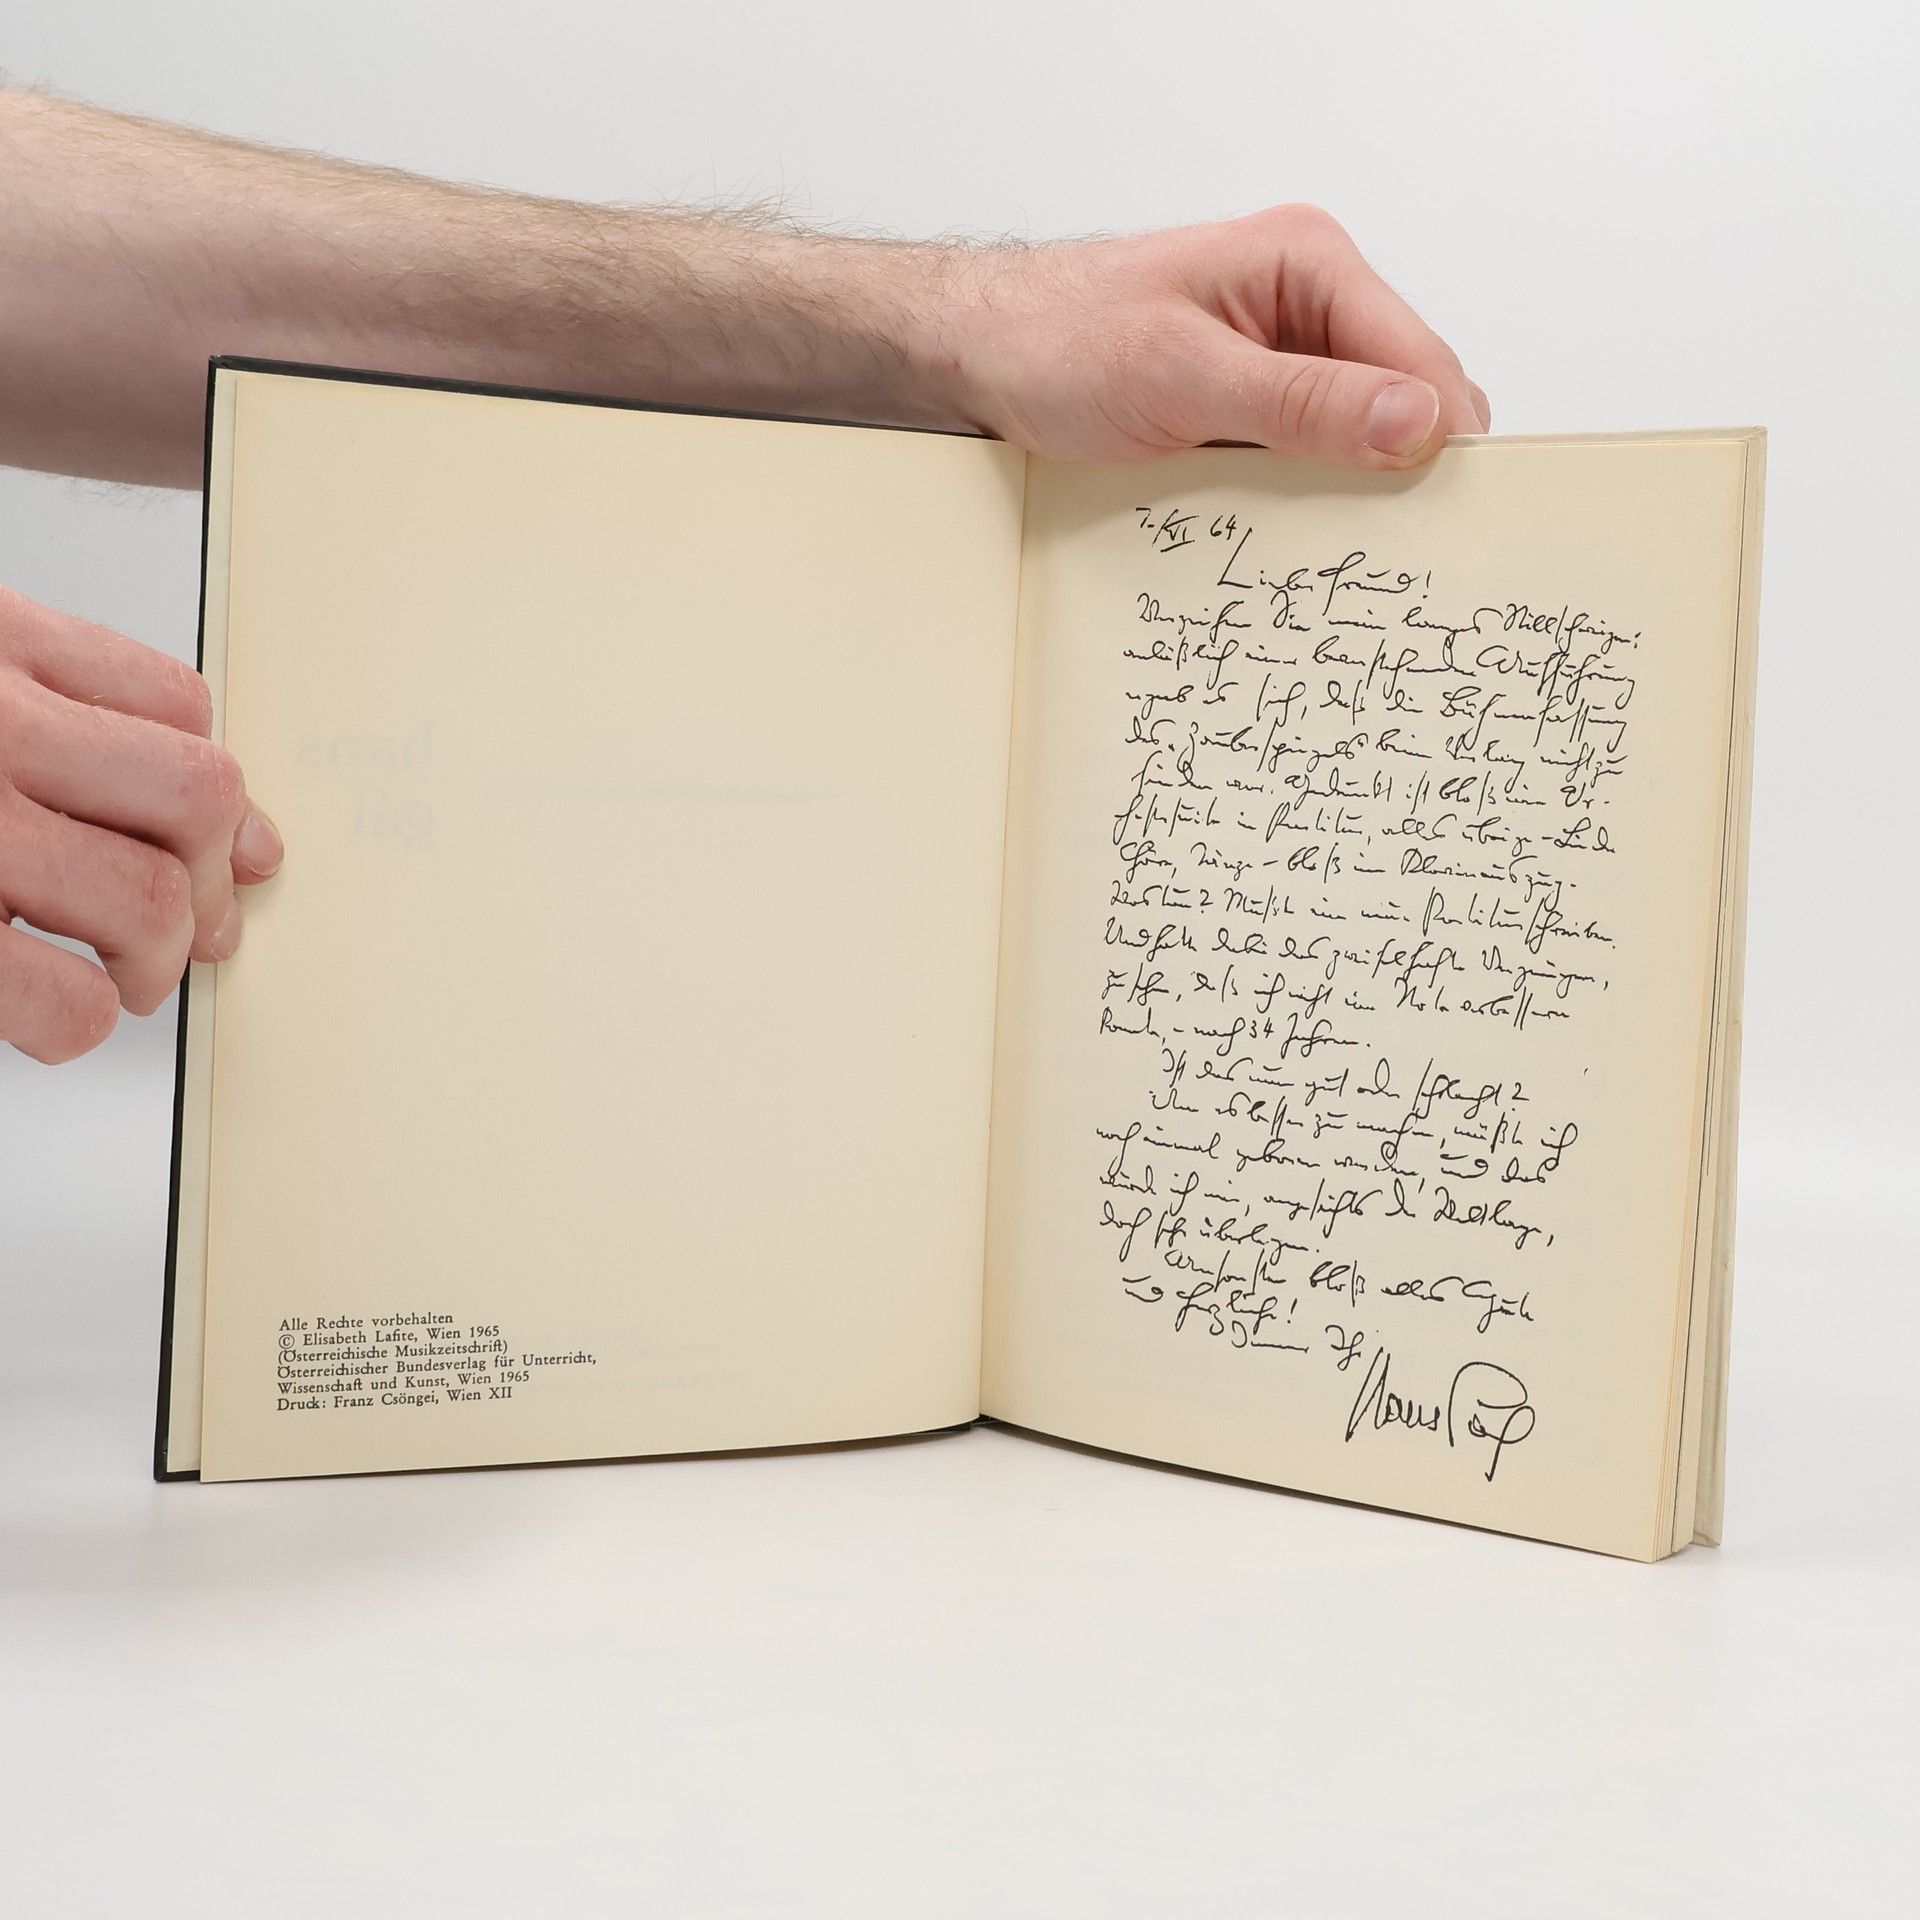 hans
gál
Alle Rechte vorbehalten
© Elisabeth Lafite, Wien 1965
(Österreichische Musikzeitschrift)
Österreichischer Bundesverlag für Unterricht,
Wissenschaft und Kunst, Wien 1965
Druck: Franz Csöngei, Wien XII
7./VI 64
Lieber Freund!
Verzeihen Sie mein langes Stillschweigen:
anläßlich einer bevorstehenden Aufführung
ergab es sich, daß die Bühnenfassung
des „Zauberspiegels“ beim Verlag nicht zu
finden war. Gedruckt ist bloß eine Or-
chestersuite in Partitur, alles übrige – Lieder
Chöre, Tänze – bloß im Klavierauszug.
Was tun? Mußte eine neue Partitur schreiben.
Und hatte dabei das zweifelhafte Vergnügen,
zu sehen, daß ich nicht eine Note verbessern
konnte, – nach 34 Jahren.
Ist das nun gut oder schlecht?
Um es besser zu machen, müßte ich
noch einmal geboren werden, und das
würde ich mir, angesichts der Weltlage,
doch sehr überlegen.
Ansonsten bloß alles Gute
und Herzliche!
Immer Ihr
Hans Gál